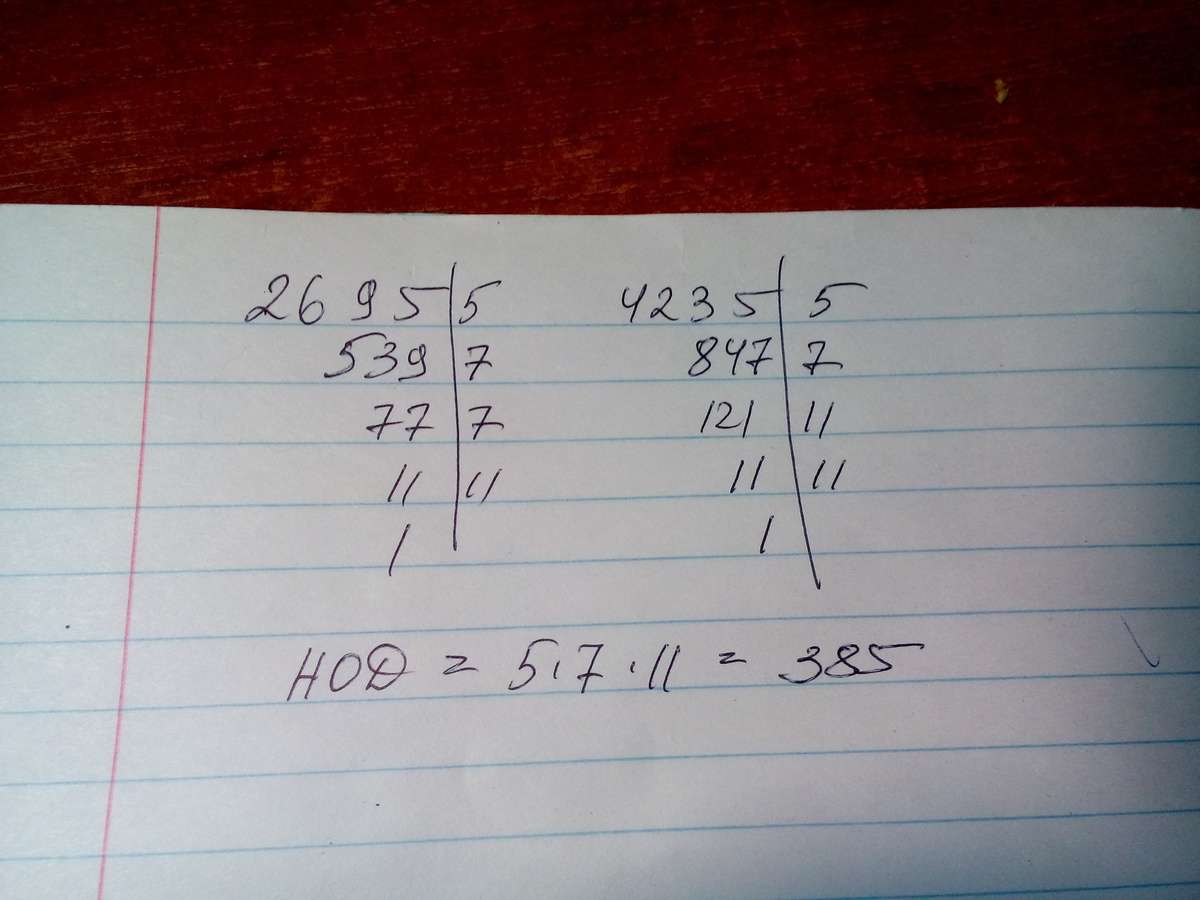 2695|5 4235|5
539|7 847|7
77|7 121|11
11|11 11|11
1| 1|
НОД = 5·7·11 = 385